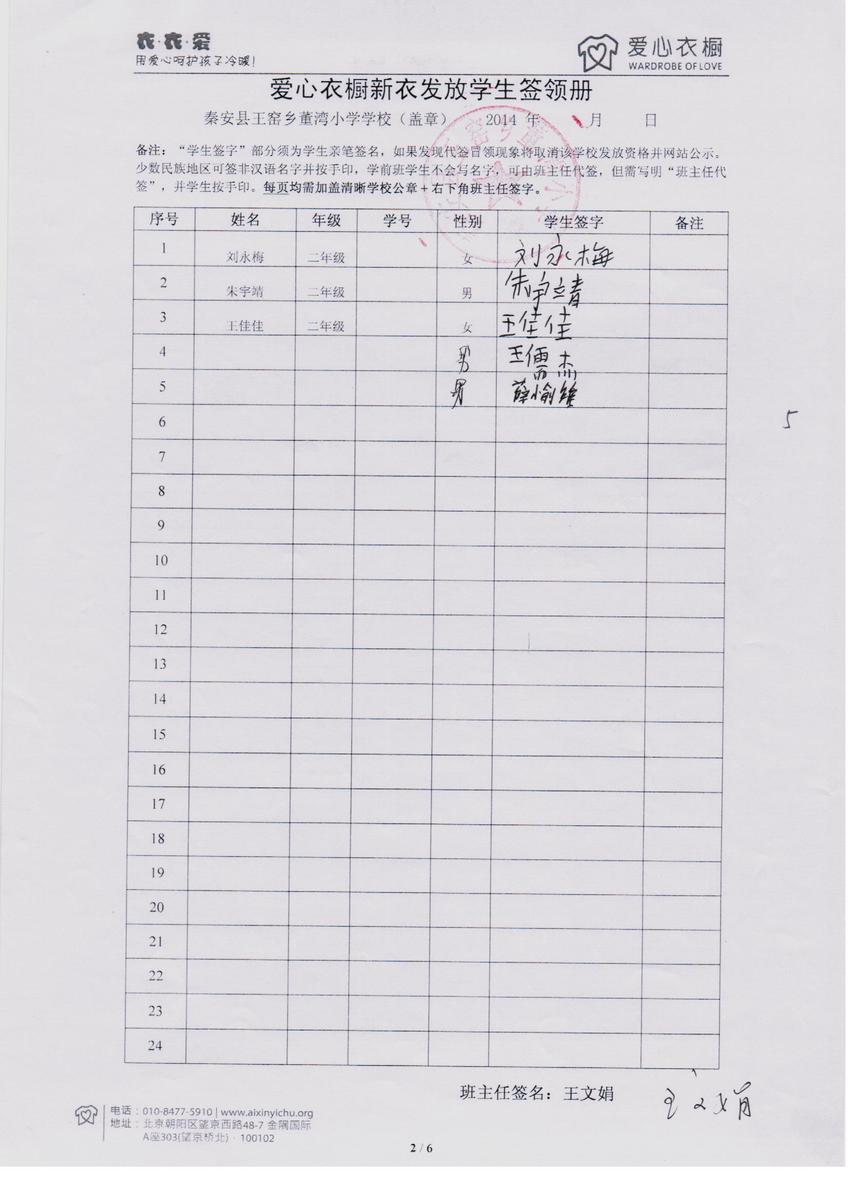 衣·衣·爱
用爱心呵护孩子冷暖!
爱心衣橱
WARDROBE OF LOVE
爱心衣橱新衣发放学生签领册
秦安县王窑乡董湾小学学校（盖章） 2014 年 月 日
备注：“学生签字”部分须为学生亲笔签名，如果发现代签冒领现象将取消该学校发放资格并网站公示。
少数民族地区可签非汉语名字并按手印，学前班学生不会写名字，可由班主任代签，但需写明“班主任代
签”，并学生按手印。每页均需加盖清晰学校公章+右下角班主任签字。
序号 姓名 年级 学号 性别 学生签字 备注
1 刘永梅 二年级 女 刘永梅
2 朱宇靖 二年级 男 朱宇靖
3 王佳佳 二年级 女 王佳佳
4 男 王儒杰
5 男 薛愉雄
6
5
7
8
9
10
11
12
13
14
15
16
17
18
19
20
21
22
23
24
班主任签名：王文娟 王文娟
电话：010-8477-5910 | www.aixinyichu.org
地址：北京朝阳区望京西路48-7 金隅国际
A座303(望京桥北) · 100102
2 / 6